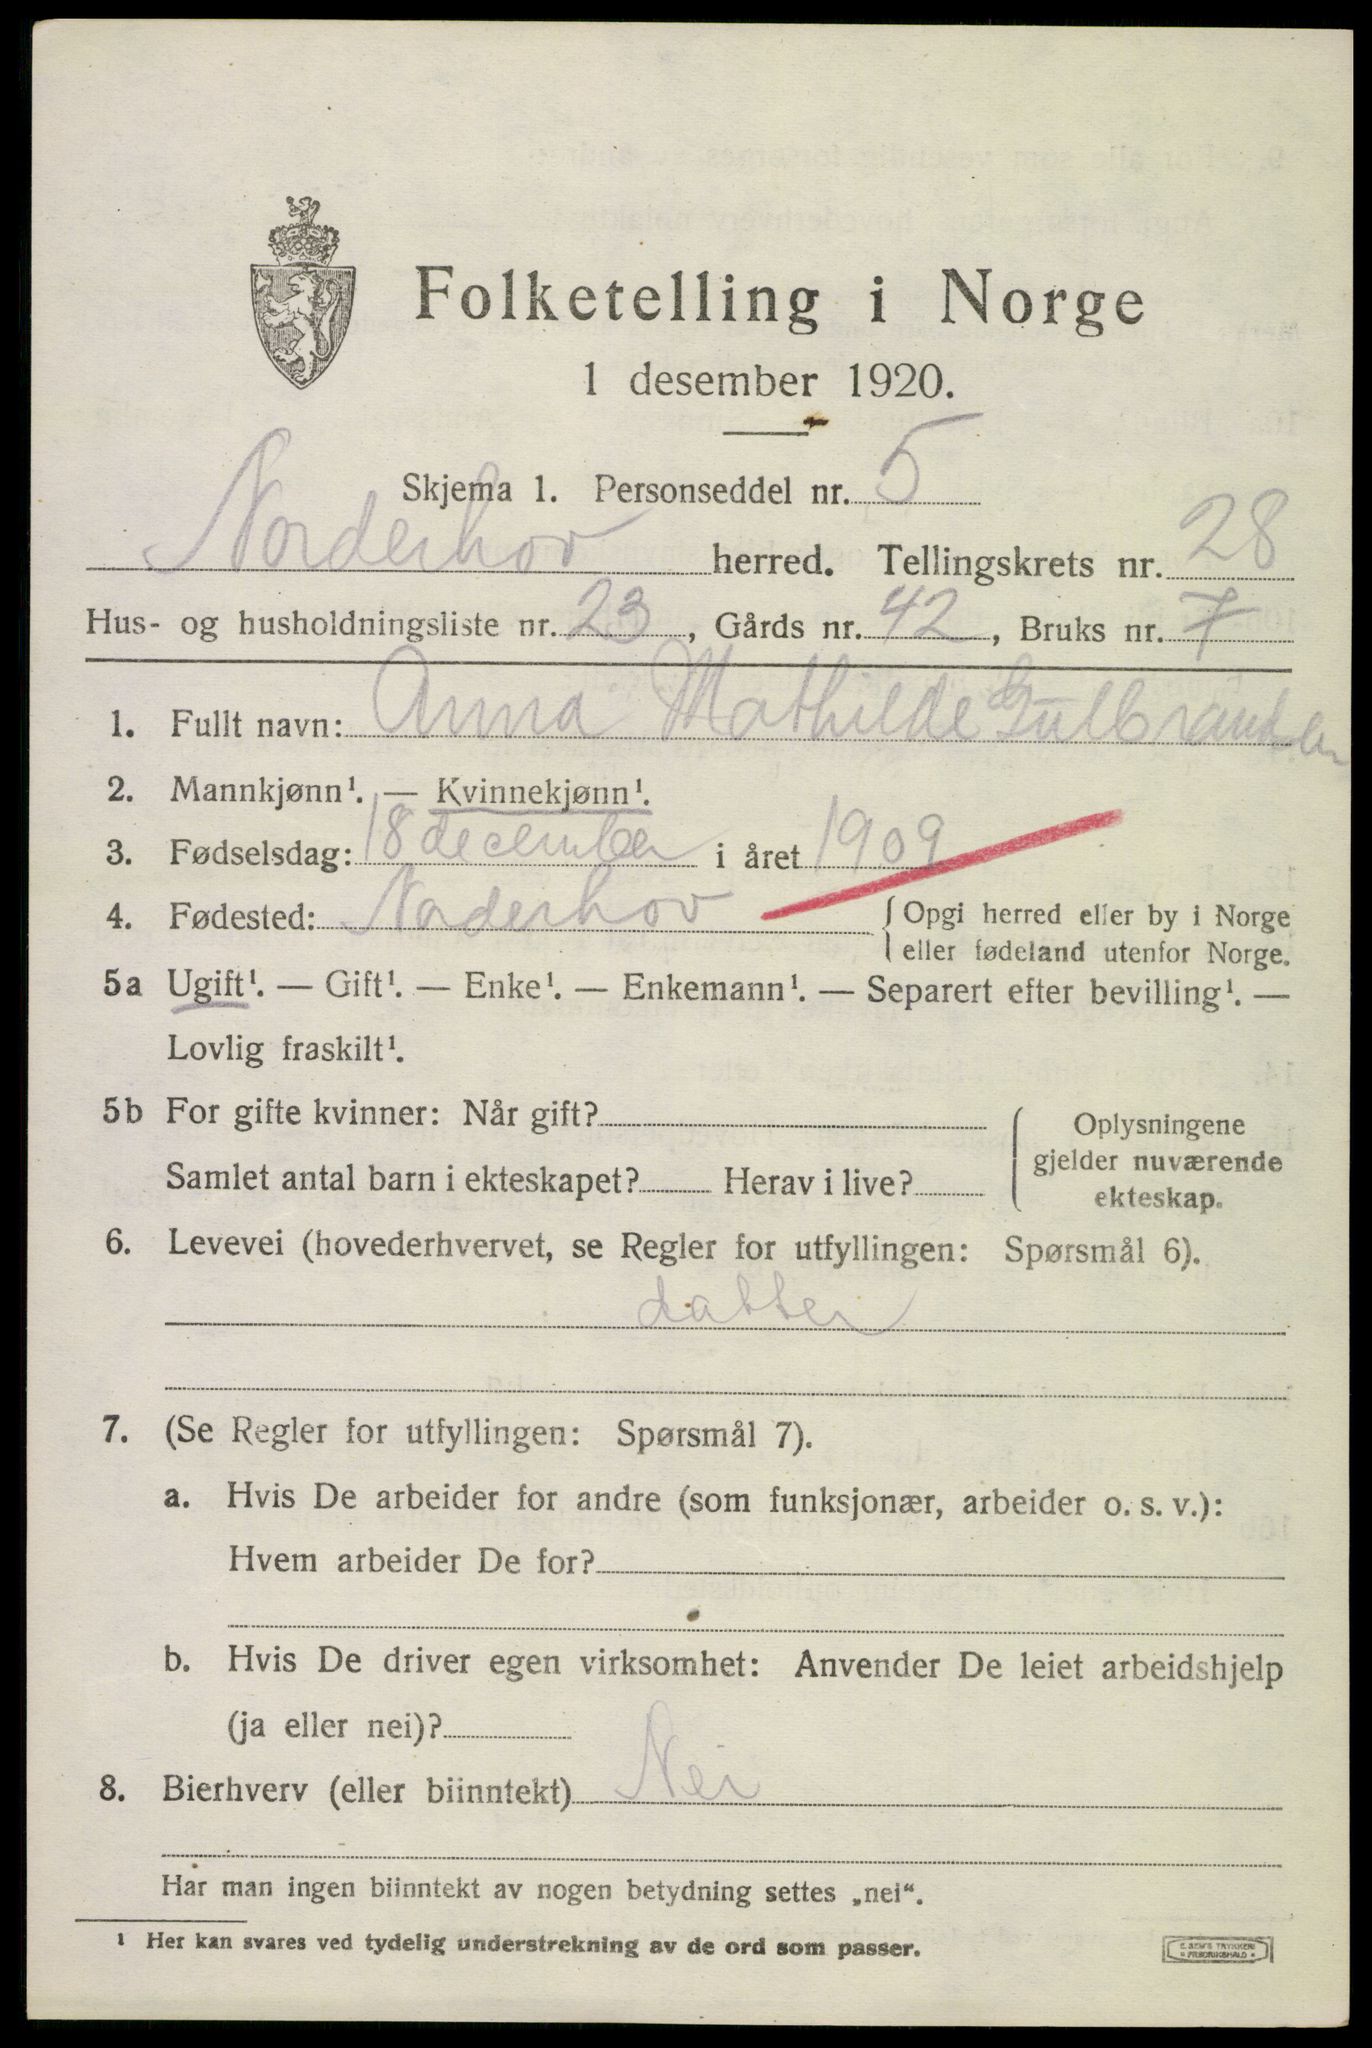 Folketelling i Norge
1 desember 1920.
Skjema 1. Personseddel nr. 5
Norderhov herred. Tellingskrets nr. 28
Hus- og husholdningsliste nr. 23, Gårds nr. 42, Bruks nr. 7
1. Fullt navn: Anna Mathilde Gulbrandsen
2. Mannkjønn¹. — Kvinnekjønn¹.
3. Fødselsdag: 18 december i året 1909
4. Fødested: Norderhov { Opgi herred eller by i Norge
eller fødeland utenfor Norge.
5a Ugift¹. — Gift¹. — Enke¹. — Enkemann¹. — Separert efter bevilling¹. —
Lovlig fraskilt¹.
5b For gifte kvinner: Når gift?
Samlet antal barn i ekteskapet? Herav i live?
{ Oplysningene
gjelder nuværende
ekteskap.
6. Levevei (hovederhvervet, se Regler for utfyllingen: Spørsmål 6).
datter
7. (Se Regler for utfyllingen: Spørsmål 7).
a. Hvis De arbeider for andre (som funksjonær, arbeider o. s. v.):
Hvem arbeider De for?
b. Hvis De driver egen virksomhet: Anvender De leiet arbeidshjelp
(ja eller nei)?
8. Bierhverv (eller biinntekt) Nei
Har man ingen biinntekt av nogen betydning settes „nei“.
¹ Her kan svares ved tydelig understrekning av de ord som passer.
E. SEM'S TRYKKERI
FREDRIKSHALD